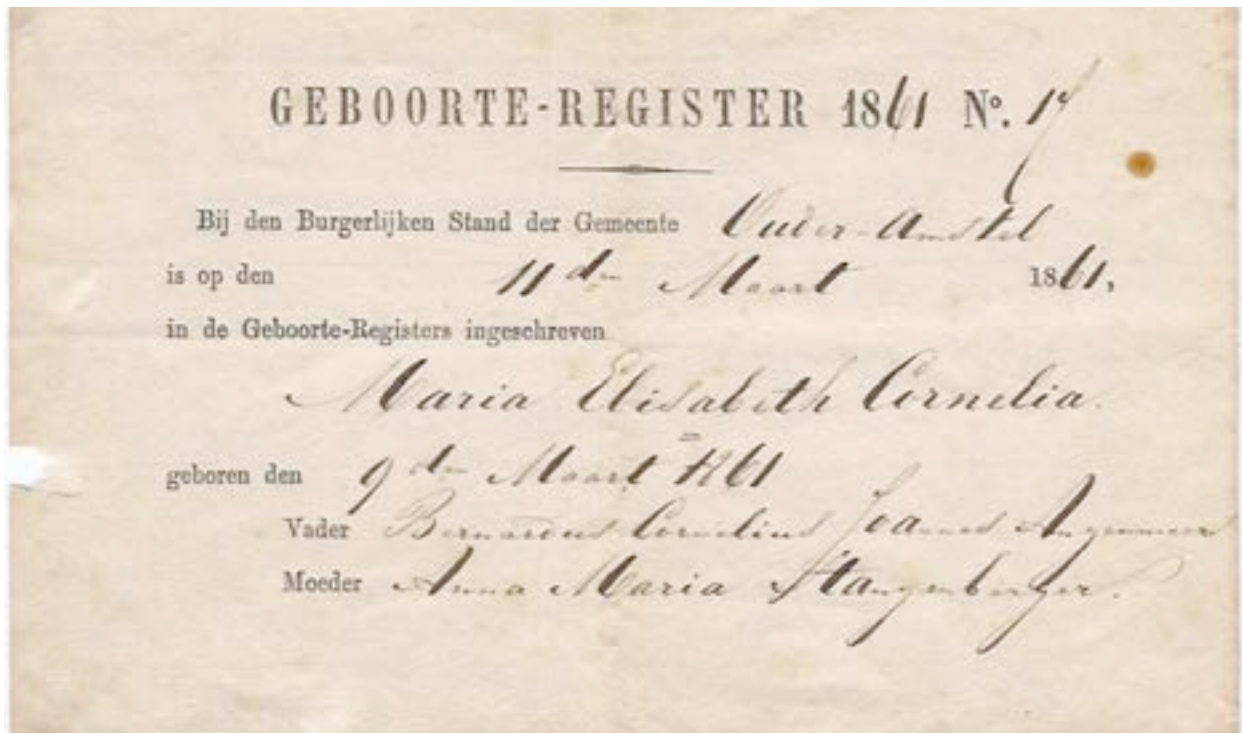 GEBOORTE-REGISTER 1861 No. 17
Bij den Burgerlijken Stand der Gemeente Ouder-Amstel
is op den 11den Maart 1861,
in de Geboorte-Registers ingeschreven
Maria Elisabeth Cornelia.
geboren den 9den Maart 1861
Vader Bernardus Cornelius Joannes
Moeder Anna Maria Stangenberger.